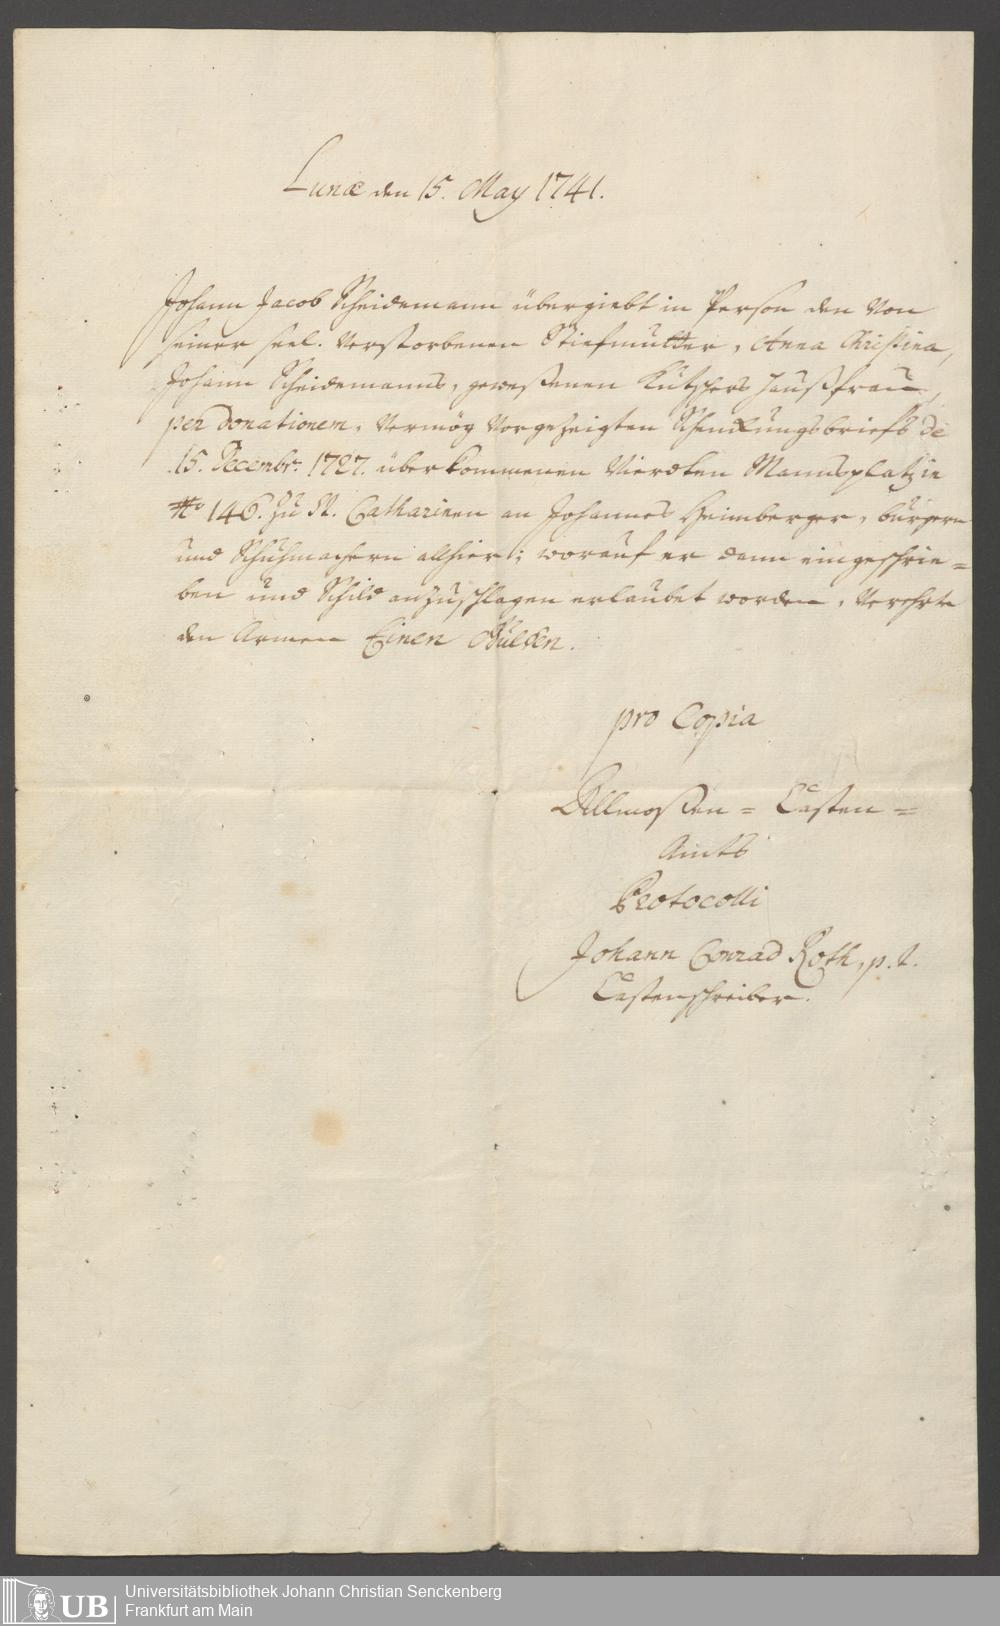 Lunæ den 15. May 1741.
Johann Jacob Scheidemann übergiebt in Person den von
seiner seel. verstorbenen Stiefmutter, Anna Christina,
Johann Scheidemanns, geweßenen Kutschers Haußfrau,
per donationem, vermög vorgezeigten Schenkungsbriefs de
15. Decembr. 1727. überkommenen vierdten Mannsplatz in
No 146. zu St. Catharinen an Johannes Heimberger, burgern
und Schuhmachern allhier; worauf er dann eingeschrie=
ben und Schild anzuschlagen erlaubet worden, verehrte
den Armen Einen Gulden.
pro Copia
Allmoßen= Casten=
Amts
Protocolli
Johann Conrad Roth, p. t.
Castenschreiber.
UB
Universitätsbibliothek Johann Christian Senckenberg
Frankfurt am Main